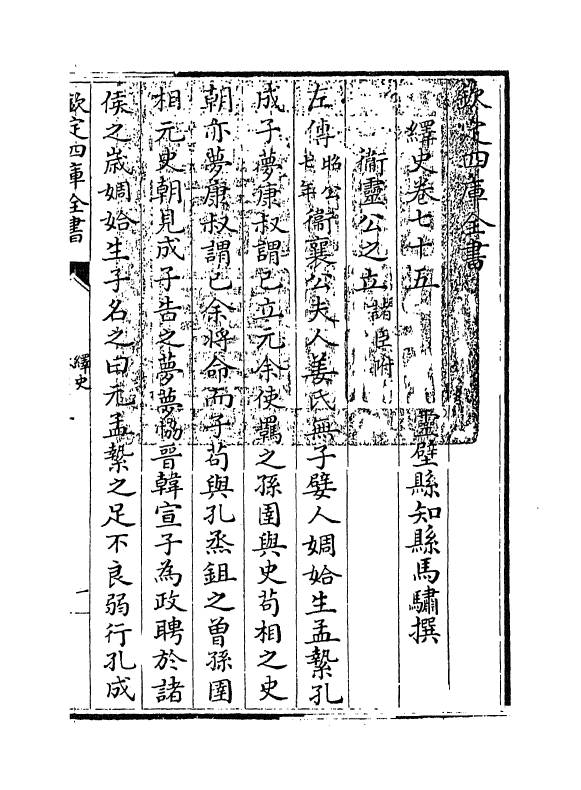 欽定四庫全書
繹史卷七十五
靈壁縣知縣馬驌撰
衛靈公之立諸臣附
左傳昭公七年衛襄公夫人姜氏無子嬖人婤姶生孟縶孔
成子夢康叔謂己立元余使羈之孫圉與史苟相之史
朝亦夢康叔謂己余將命而子苟與孔烝鉏之曾孫圉
相元史朝見成子告之夢夢協晉韓宣子為政聘於諸
侯之歲婤姶生子名之曰元孟縶之足不良弱行孔成
欽定四庫全書
繹史
一